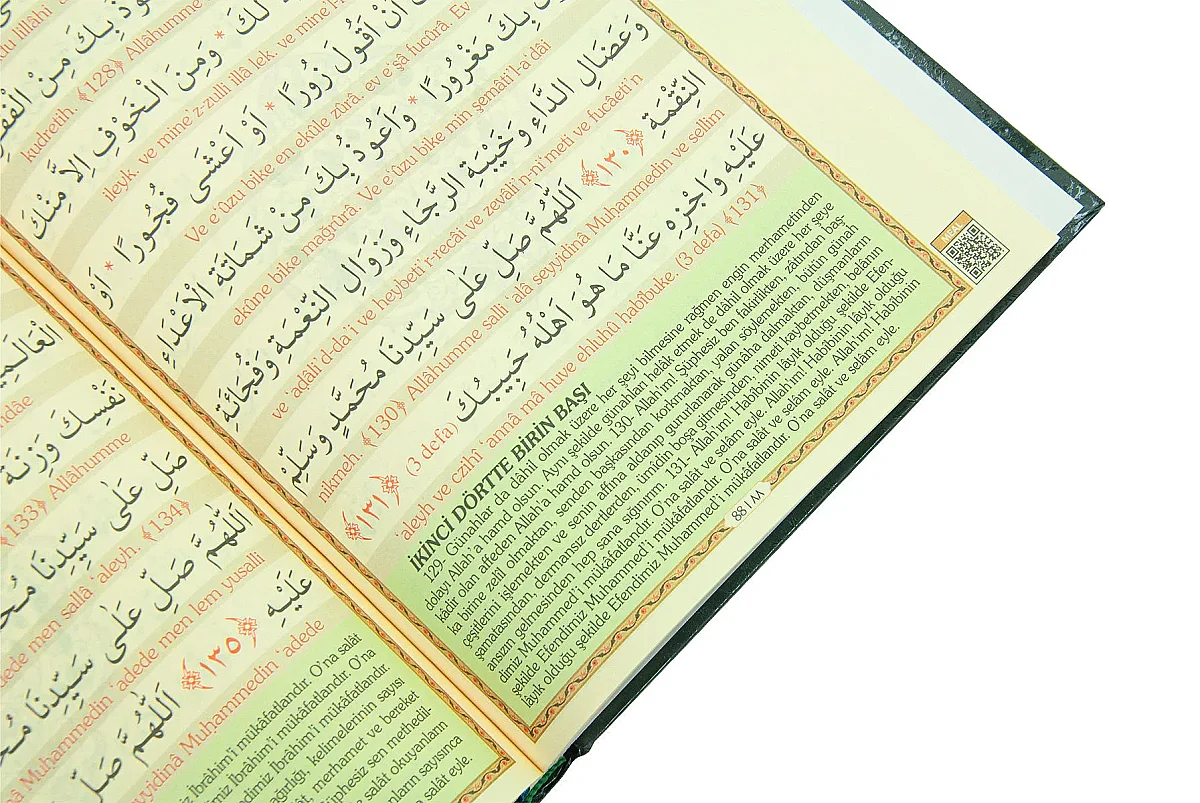 قُوذُ بِكَ مِنْ الْفَقْرِ
kudretih. ﴾128﴿ Allâhumme
لَكَ * وَمِنَ الْخَوْفِ اِلاَّ مِنْكَ
ileyk. ve mine'z-zulli illâ lek. ve mine'l-
اَنْ اَقُولَ زُورًا * اَوْ اَغْشَى فُجُورًا * اَوْ
Ve e'ûzu bike en ekûle zûra. ev e'şâ fucûra. Ev
بِكَ مَغْرُورًا * وَاَعُوذُ بِكَ مِنْ شَمَاتَةِ الْاَعْدَاءِ
ekûne bike mağrûra. Ve e'ûzu bike min şemâti'l-a'dâi
وَعَضَالِ الدَّاءِ وَخَيْبَةِ الرَّجَاءِ وَزَوَالِ النِّعْمَةِ وَفُجَائَةِ
ve 'adâli'd-dâ'i ve heybeti'r-recâi ve zevâli'n-ni'meti ve fucâeti'n
النِّقْمَةِ ﴿١٣٠﴾ اَللّٰهُمَّ صَلِّ عَلٰى سَيِّدِنَا مُحَمَّدٍ وَسَلِّمْ
nikmeh. ﴾130﴿ Allâhumme salli 'alâ seyyidinâ Muhammedin ve sellim
عَلَيْهِ وَاجْزِهِ عَنَّا مَا هُوَ اَهْلُهُ حَبِيبُكَ (3 defa) ﴿١٣١﴾
'aleyh ve czihî 'annâ mâ huve ehluhû habîbuke. (3 defa) ﴾131﴿
İKİNCİ DÖRTTE BİRİN BAŞI
129- Günahlar da dâhil olmak üzere her şeyi bilmesine rağmen engin merhametinden
dolayı Allah'a hamd olsun. Aynı şekilde günahları helâk etmek de dâhil olmak üzere her şeye
kâdir olan affeden Allah'a hamd olsun. 130- Allah'ım! Şüphesiz ben fakirlikten, zâtından baş-
ka birine zelil olmaktan, senden başkasından korkmaktan, yalan söylemekten, bütün günah
çeşitlerini işlemekten ve senin affına aldanıp gururlanarak günaha dalmaktan, düşmanların
şamatasından, dermansız dertlerden, ümidin boşa gitmesinden, nimeti kaybetmekten, belânın
ansızın gelmesinden hep sana sığınırım. 131- Allah'ım! Habîbinin lâyık olduğu şekilde Efen-
dimiz Muhammed'i mükâfatlandır. O'na salât ve selâm eyle. Allah'ım! Habîbinin lâyık olduğu
şekilde Efendimiz Muhammed'i mükâfatlandır. O'na salât ve selâm eyle. Allah'ım! Habîbinin
lâyık olduğu şekilde Efendimiz Muhammed'i mükâfatlandır. O'na salât ve selâm eyle.
88 / ٨٨
الْعَالَمِي
ndâe
نَفْسِكَ وَزِنَةَ
﴾133﴿ Allâhumme
صَلِّ عَلٰى سَيِّدِنَا مُحَ
adede men sallâ 'aleyh. ﴾134﴿
اَللّٰهُمَّ صَلِّ عَلٰى سَيِّدِنَا مُحَ
Muhammedin 'adede men lem yusalli
عَلَيْهِ ﴿١٣٥﴾ اَللّٰهُمَّ صَلِّ
eyyidinâ Muhammedin 'adede
miz İbrâhim'i mükâfatlandır. O'na salât
miz İbrâhim'i mükâfatlandır. O'na
dimiz İbrâhim'i mükâfatlandır.
ağırlığı, kelimelerinin sayısı
ât, merhamet ve bereket
Şüphesiz sen methedil-
e salât okuyanların
nların sayısınca
salât eyle.